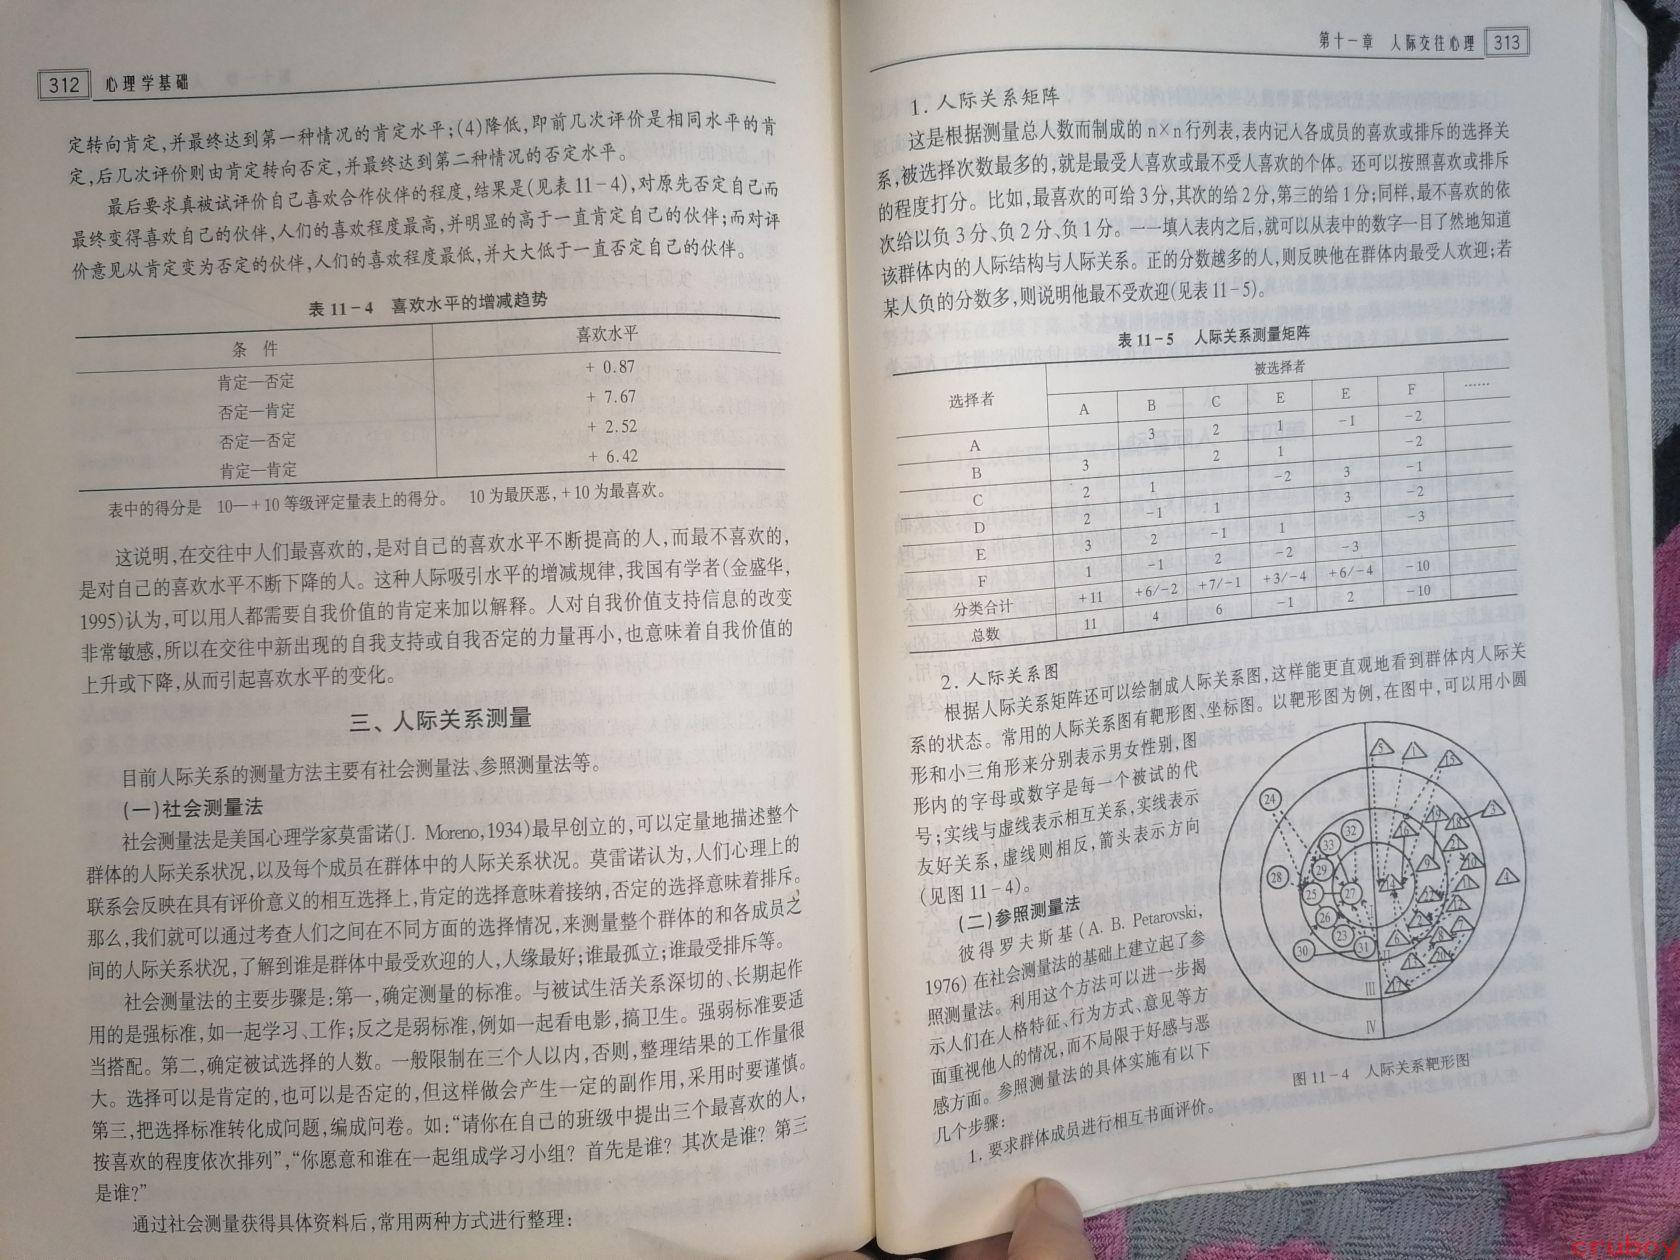 312 心理学基础
定转向肯定,并最终达到第一种情况的肯定水平;(4)降低,即前几次评价是相同水平的肯
定,后几次评价则由肯定转向否定,并最终达到第二种情况的否定水平。
最后要求真被试评价自己喜欢合作伙伴的程度,结果是(见表11-4),对原先否定自己而
最终变得喜欢自己的伙伴,人们的喜欢程度最高,并明显的高于一直肯定自己的伙伴;而对评
价意见从肯定变为否定的伙伴,人们的喜欢程度最低,并大大低于一直否定自己的伙伴。
表 11-4 喜欢水平的增减趋势
条 件 喜欢水平
肯定—否定 + 0.87
否定—肯定 + 7.67
否定—否定 + 2.52
肯定—肯定 + 6.42
表中的得分是 10—+10等级评定量表上的得分。 10为最厌恶,+10为最喜欢。
这说明,在交往中人们最喜欢的,是对自己的喜欢水平不断提高的人,而最不喜欢的,
是对自己的喜欢水平不断下降的人。这种人际吸引水平的增减规律,我国有学者(金盛华,
1995)认为,可以用人都需要自我价值的肯定来加以解释。人对自我价值支持信息的改变
非常敏感,所以在交往中新出现的自我支持或自我否定的力量再小,也意味着自我价值的
上升或下降,从而引起喜欢水平的变化。
三、人际关系测量
目前人际关系的测量方法主要有社会测量法、参照测量法等。
(一)社会测量法
社会测量法是美国心理学家莫雷诺(J. Moreno,1934)最早创立的,可以定量地描述整个
群体的人际关系状况,以及每个成员在群体中的人际关系状况。莫雷诺认为,人们心理上的
联系会反映在具有评价意义的相互选择上,肯定的选择意味着接纳,否定的选择意味着排斥。
那么,我们就可以通过考查人们之间在不同方面的选择情况,来测量整个群体的和各成员之
间的人际关系状况,了解到谁是群体中最受欢迎的人,人缘最好;谁最孤立;谁最受排斥等。
社会测量法的主要步骤是:第一,确定测量的标准。与被试生活关系深切的、长期起作
用的是强标准,如一起学习、工作;反之是弱标准,例如一起看电影,搞卫生。强弱标准要适
当搭配。第二,确定被试选择的人数。一般限制在三个人以内,否则,整理结果的工作量很
大。选择可以是肯定的,也可以是否定的,但这样做会产生一定的副作用,采用时要谨慎。
第三,把选择标准转化成问题,编成问卷。如:“请你在自己的班级中提出三个最喜欢的人,
按喜欢的程度依次排列”,“你愿意和谁在一起组成学习小组?首先是谁?其次是谁?第三
是谁?”
通过社会测量获得具体资料后,常用两种方式进行整理:
第十一章 人际交往心理 313
1. 人际关系矩阵
这是根据测量总人数而制成的n×n行列表,表内记入各成员的喜欢或排斥的选择关
系,被选择次数最多的,就是最受人喜欢或最不受人喜欢的个体。还可以按照喜欢或排斥
的程度打分。比如,最喜欢的可给3分,其次的给2分,第三的给1分;同样,最不喜欢的依
次给以负3分、负2分、负1分。一一填入表内之后,就可以从表中的数字一目了然地知道
该群体内的人际结构与人际关系。正的分数越多的人,则反映他在群体内最受人欢迎;若
某人负的分数多,则说明他最不受欢迎(见表11-5)。
表 11-5 人际关系测量矩阵
选择者 被选择者
A B C E E F ……
A 3 2 1 -1 -2
B 3 2 1 -2
C 2 1 -2 3 -1
D 2 -1 1 3 -2
E 3 2 -1 1 -3
F 1 -1 2 -2 -3
分类合计 +11 +6/-2 +7/-1 +3/-4 +6/-4 -10
总数 11 4 6 -1 2 -10
2. 人际关系图
根据人际关系矩阵还可以绘制成人际关系图,这样能更直观地看到群体内人际关
系的状态。常用的人际关系图有靶形图、坐标图。以靶形图为例,在图中,可以用小圆
形和小三角形来分别表示男女性别,图
形内的字母或数字是每一个被试的代
号;实线与虚线表示相互关系,实线表示
友好关系,虚线则相反,箭头表示方向
(见图11-4)。
(二)参照测量法
彼得罗夫斯基(A. B. Petarovski,
1976)在社会测量法的基础上建立起了参
照测量法。利用这个方法可以进一步揭
示人们在人格特征、行为方式、意见等方
面重视他人的情况,而不局限于好感与恶
感方面。参照测量法的具体实施有以下
几个步骤:
1. 要求群体成员进行相互书面评价。
5 1 15
24
3
32 16 19 18
33 21
29 9 10
28 4
25 27 11
26
23 6
30 31
Ⅲ
Ⅳ
图 11-4 人际关系靶形图
cruboy